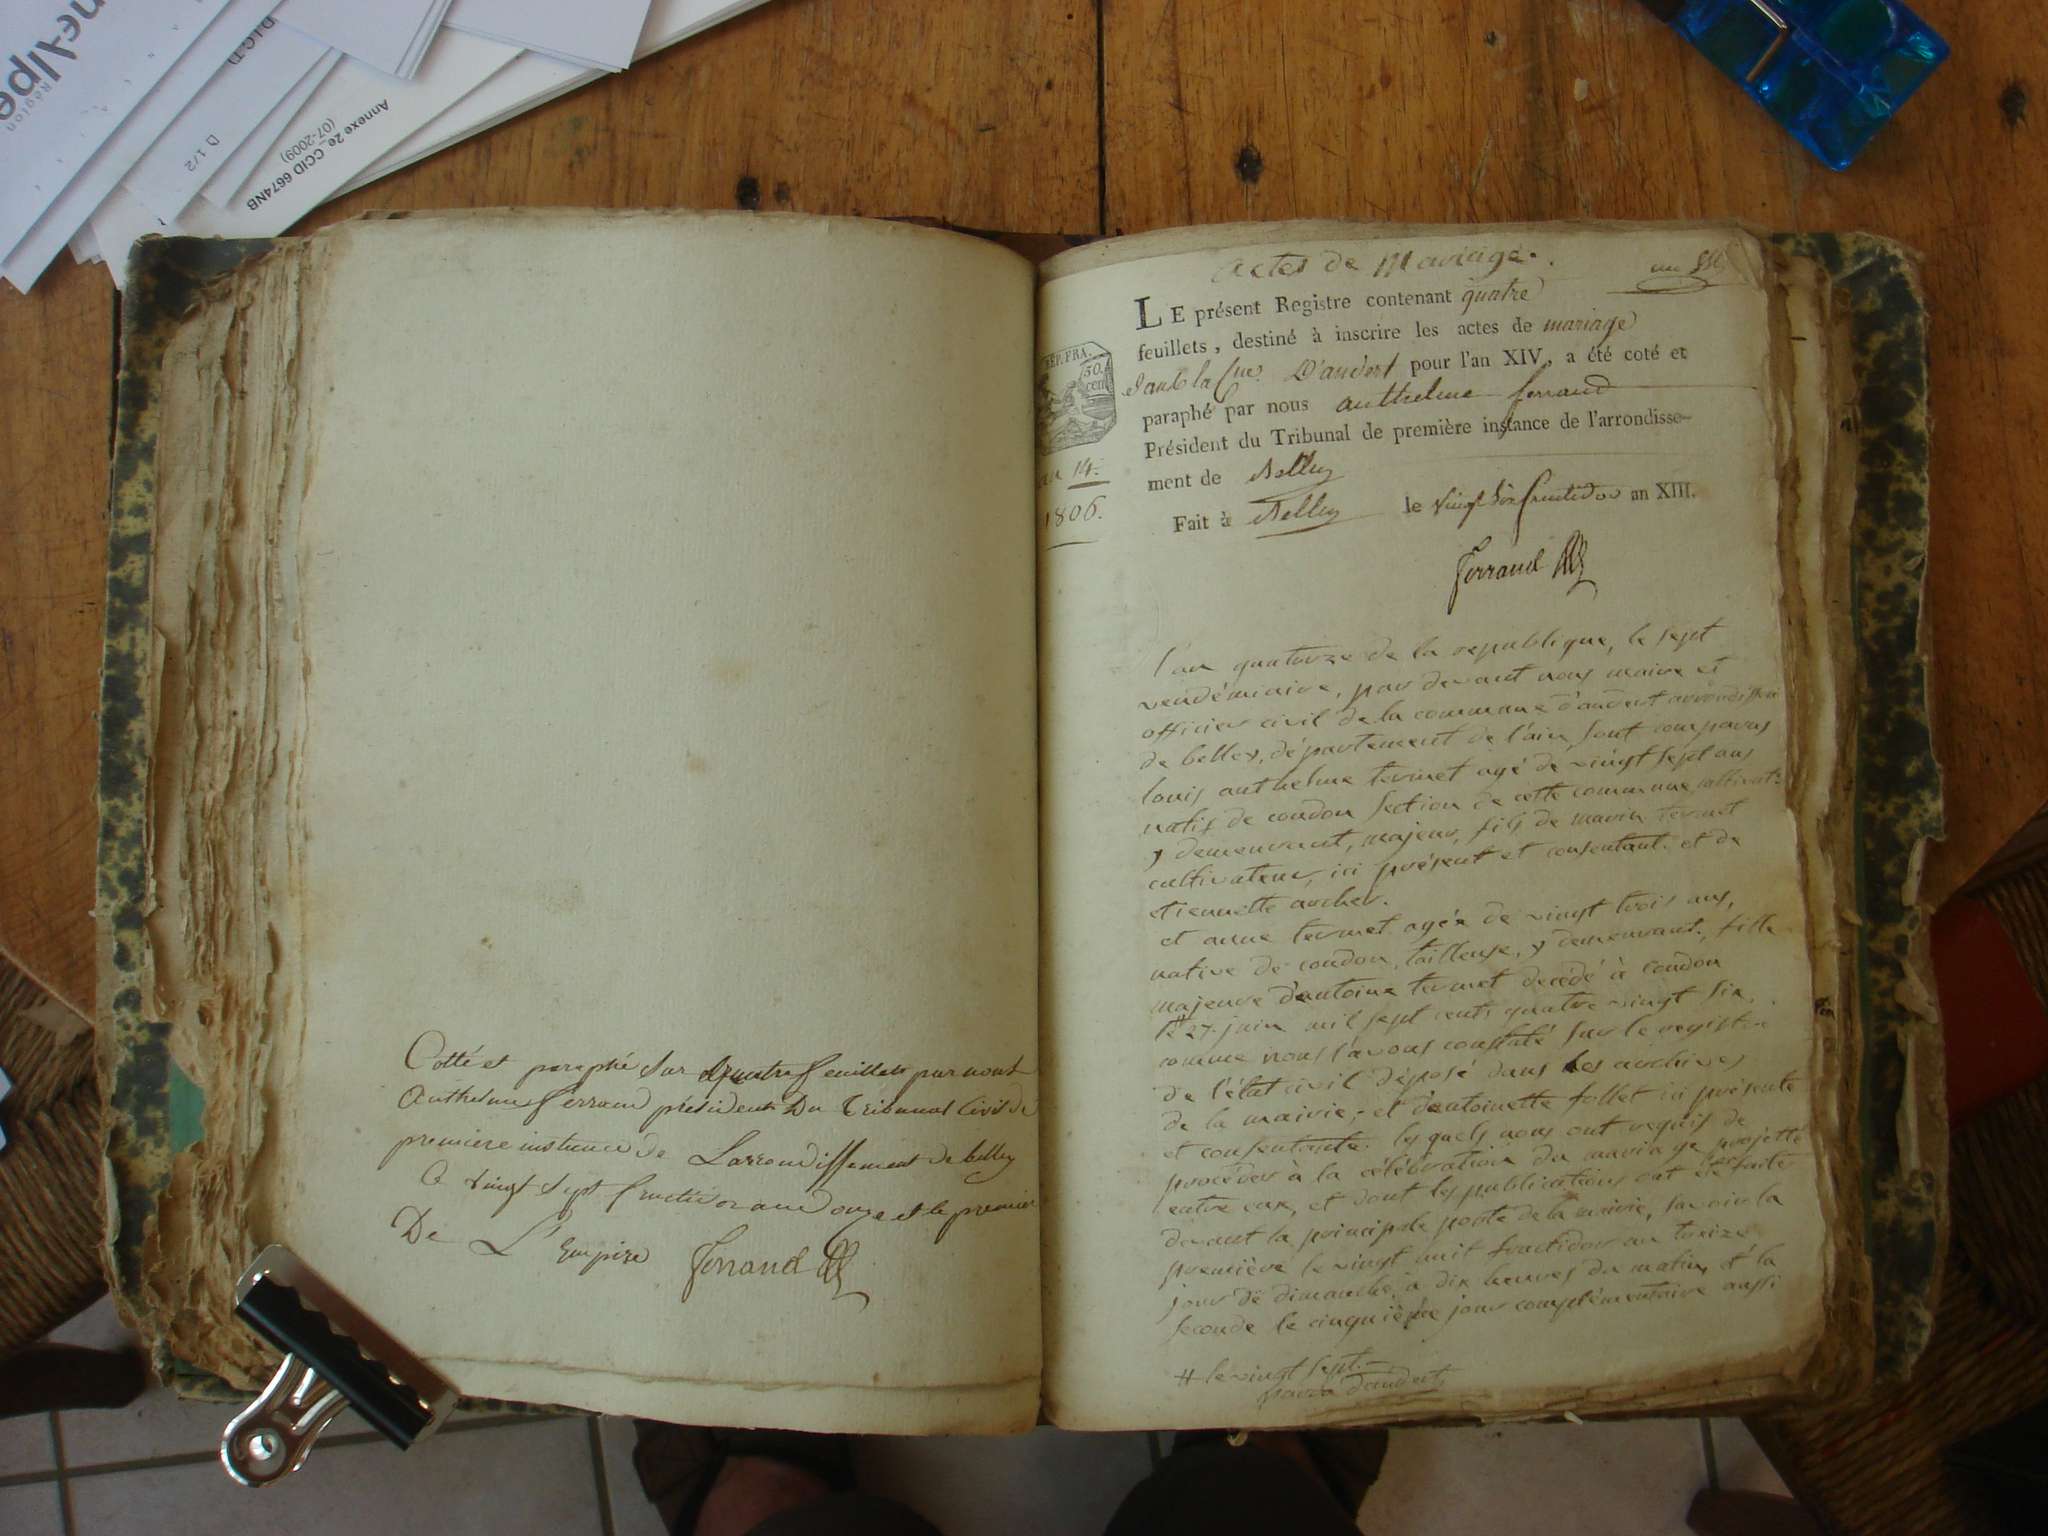 ne-Alpe
Région
D.I.C.T.D
D 1/2
Annexe 2e_CCID 6674NB
(07-2009)
Cotté et paraphé sur quatre feuillets par nous
Anthelme ferrand président Du Tribunal Civil de
première instance de Larrondissement de belley
Ce vingt sept fructidor an douze et le premier
De L'Empire Ferrand
Actes de Mariage.
LE présent Registre contenant quatre
feuillets, destiné à inscrire les actes de mariage
dans la Cne D'andert pour l'an XIV, a été coté et
paraphé par nous anthelme ferrand
Président du Tribunal de première instance de l'arrondisse-
ment de Belley
Fait à Belley le vingt six fructidor an XIII.
Ferrand
RÉP. FRA.
50
cen
an 14.
1806.
l'an quatorze de la republique, le sept
vendémiaire, par devant nous maire et
officier civil de la commune d'andert arrondissem
de belley, département de l'ain, sont comparus
louis anthelme termet agé de vingt sept ans
natif de condon section de cette commune cultivat.
y demeurant, majeur, fils de marin termet
cultivateur, ici présent et consentant. et de
etiennette archer.
et anne termet agée de vingt trois ans,
native de condon, tailleuse, y demeurant, fille
majeure d'antoine termet décédé à condon
le 27. juin mil sept cents quatre vingt six,
comme nous l'avons constaté sur le regist..
de l'état civil déposé dans les archives
de la mairie; et d'antoinette follet ici présente
et consentante. lesquels nous ont requis de
procéder à la célébration du mariage projetté
entre eux, et dont les publications ont été faite
devant la principale porte de la mairie, savoir la
première le vingt huit fructidor an treize
jour de dimanche, à dix heures du matin, et la
seconde le cinquième jour complémentaire aussi
# le vingt sept.